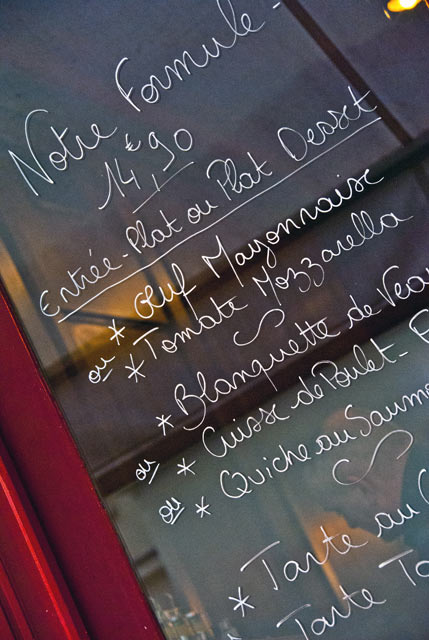 Notre Formule -
14,€90
Entrée-Plat ou Plat Dessert
* Œuf Mayonnaise
ou * Tomate Mozzarella
* Blanquette de Vea
ou * Cuisse de Poulet -
ou * Quiche au Saumo
* Tarte au
Tarte Ta